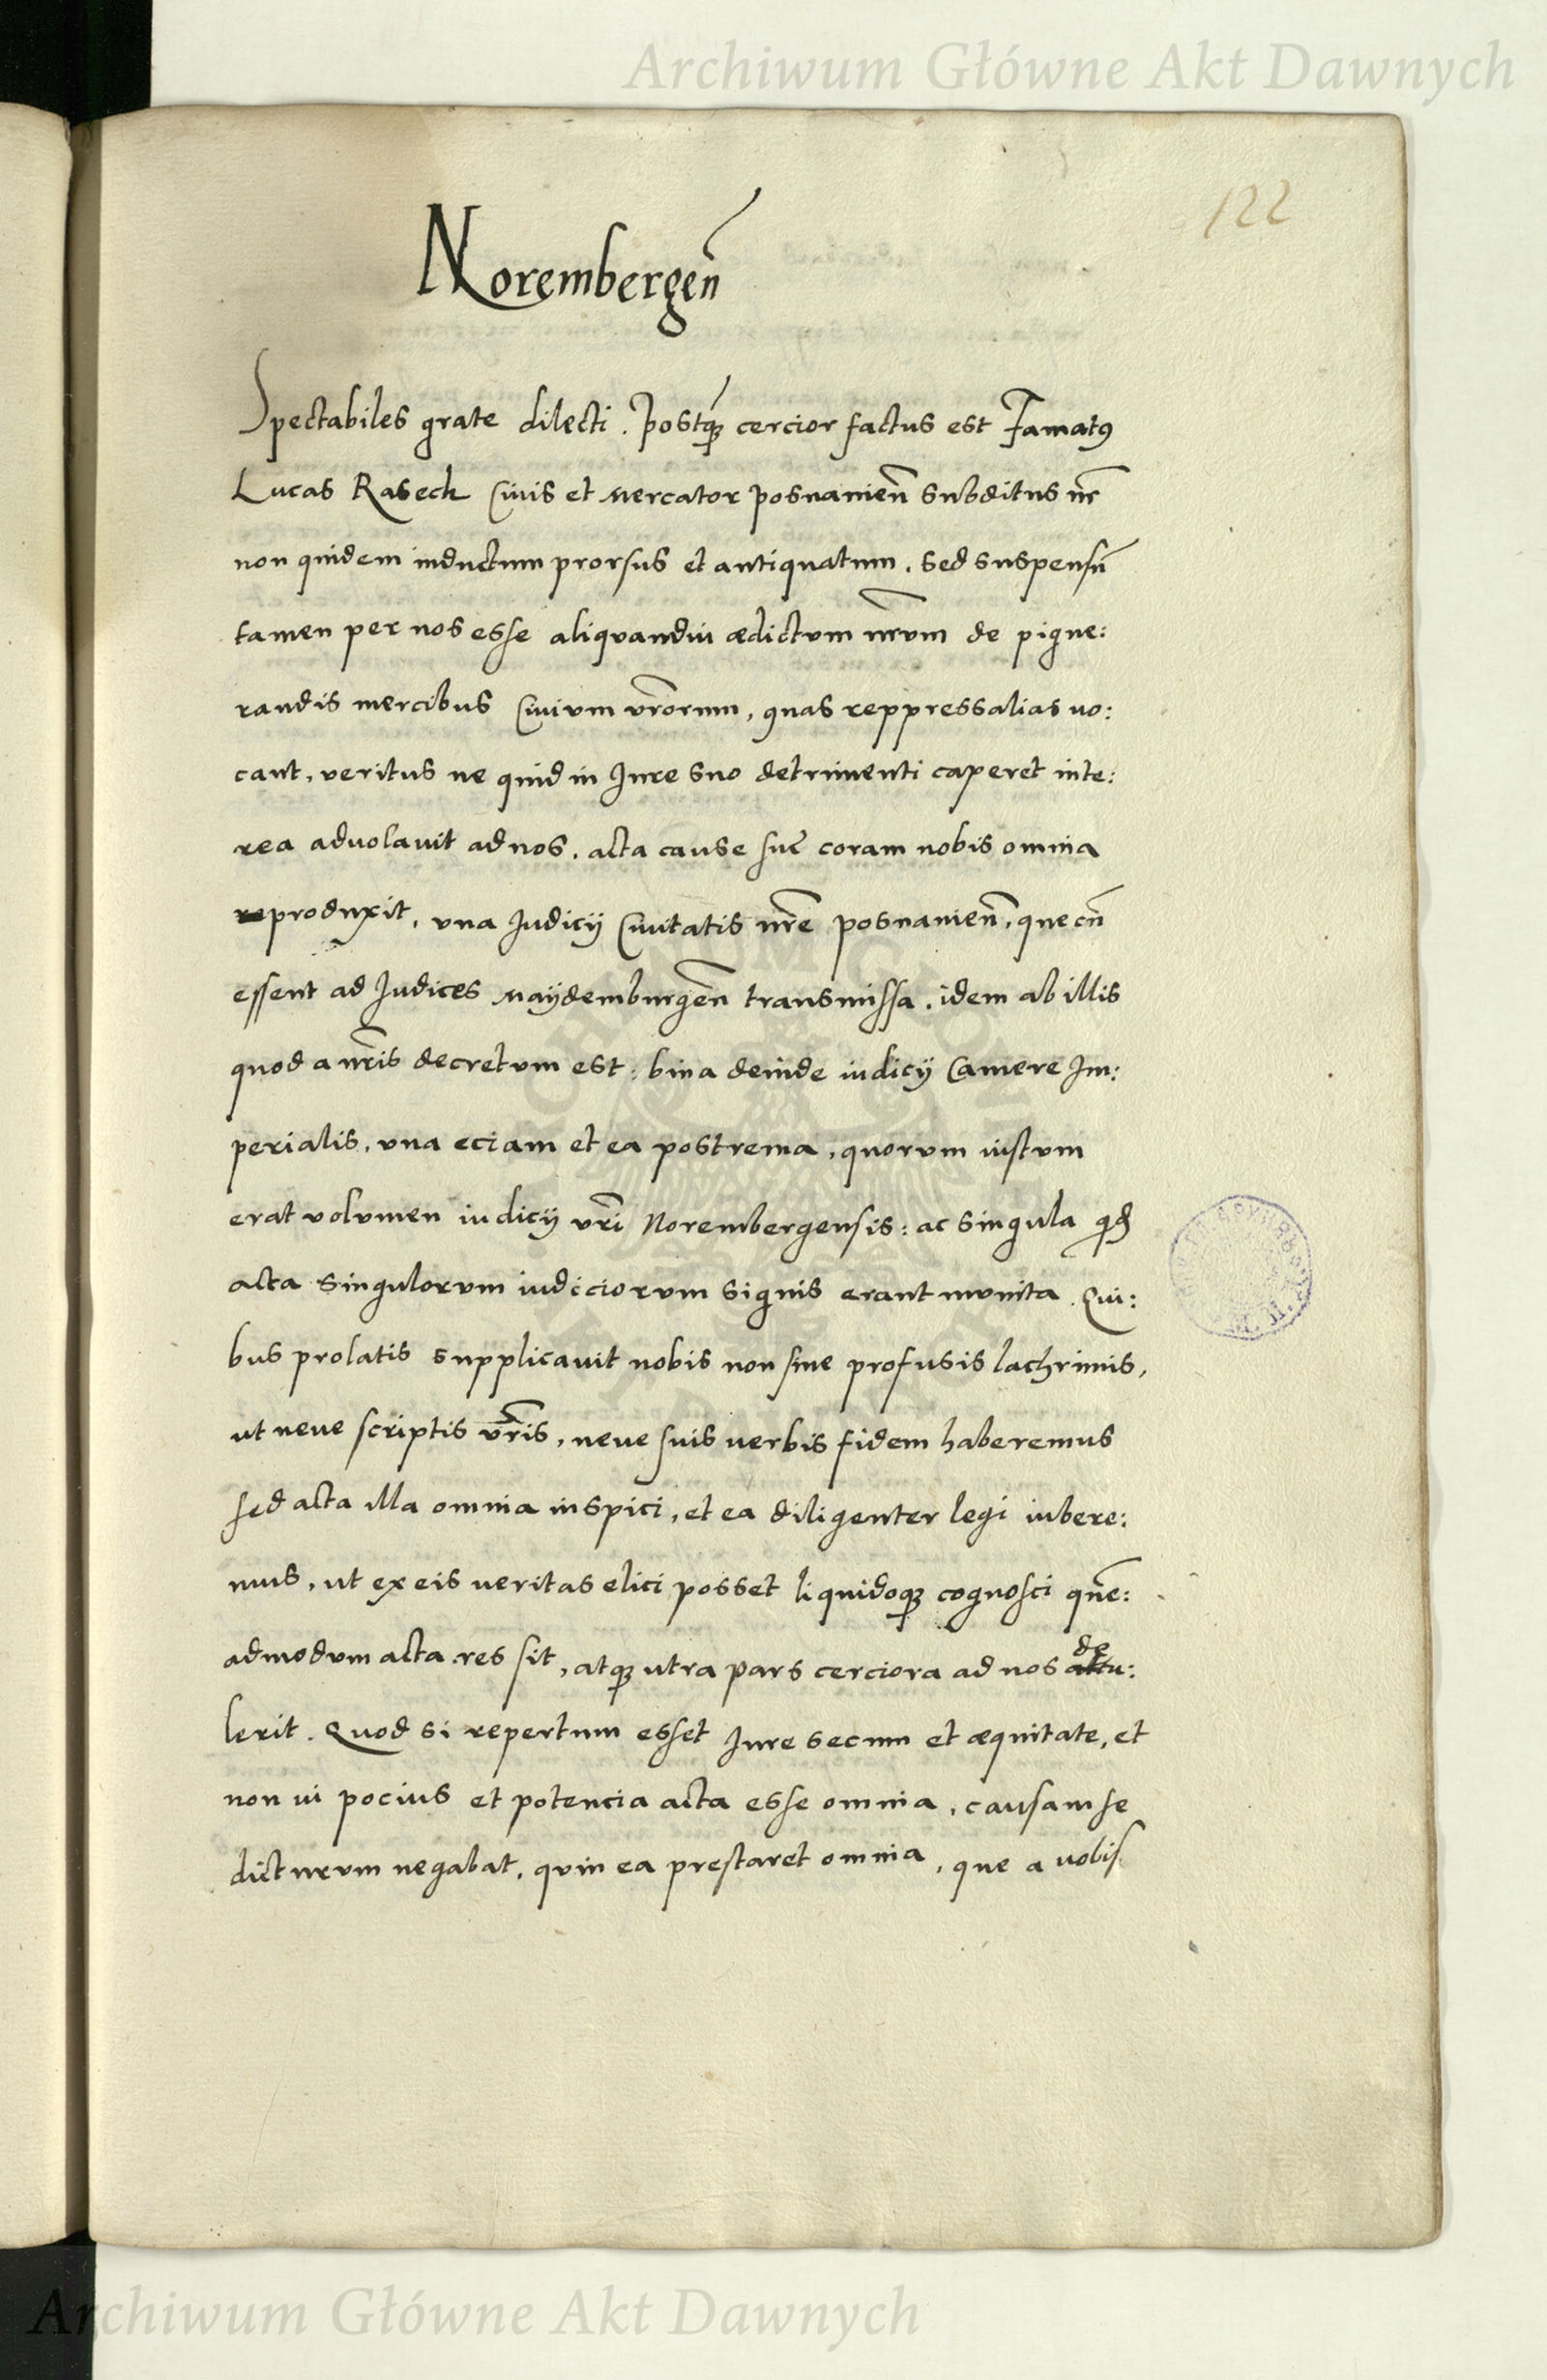 Archiwum Główne Akt Dawnych
122
Norembergen̄
Spectabiles grate dilecti. Postq̃ꝫ cercior factus est Famatꝯ
Lucas Raseck Civis et Mercator posnanien̄ subditus nr̄
non quidem inductum prorsus et antiquatum, sed suspensū
tamen per nos esse aliquandiu ædictum nr̄um de pigne:
randis mercibus Civium vr̄orum, quas reppressalias uo:
cant, veritus ne quid in Jure suo detrimenti caperet inte:
rea advolavit ad nos, acta cause suę coram nobis omnia
reproduxit, una Judicij Civitatis nr̄e posnanien̄, que cū
essent ad Judices Maÿdemburgen̄ transmissa, idem ab illis
quod a nr̄is decretum est: bina deinde iudicij Camere Im:
perialis, una eciam et ea postrema, quorum iustum
erat volumen iudicij vr̄i Norembergensis: ac singula qͥdē
acta singulorum iudiciorum signis erant munita. Qui:
bus prolatis supplicavit nobis non sine profusis lachrimis,
ut neue scriptis vr̄is, neue suis verbis fidem haberemus
sed acta illa omnia inspici, et ea diligenter legi iubere:
mus, ut ex eis veritas elici posset liquidoqꝫ cognosci quē:
admodum acta res sit, atqꝫ utra pars cerciora ad nos de attu:
lerit. Quod si repertum esset Jure secum et æquitate, et
non ui pocius et potencia acta esse omnia, causam se
dicturum negabat, quin ea prestaret omnia, que a vobis
Archiwum Główne Akt Dawnych